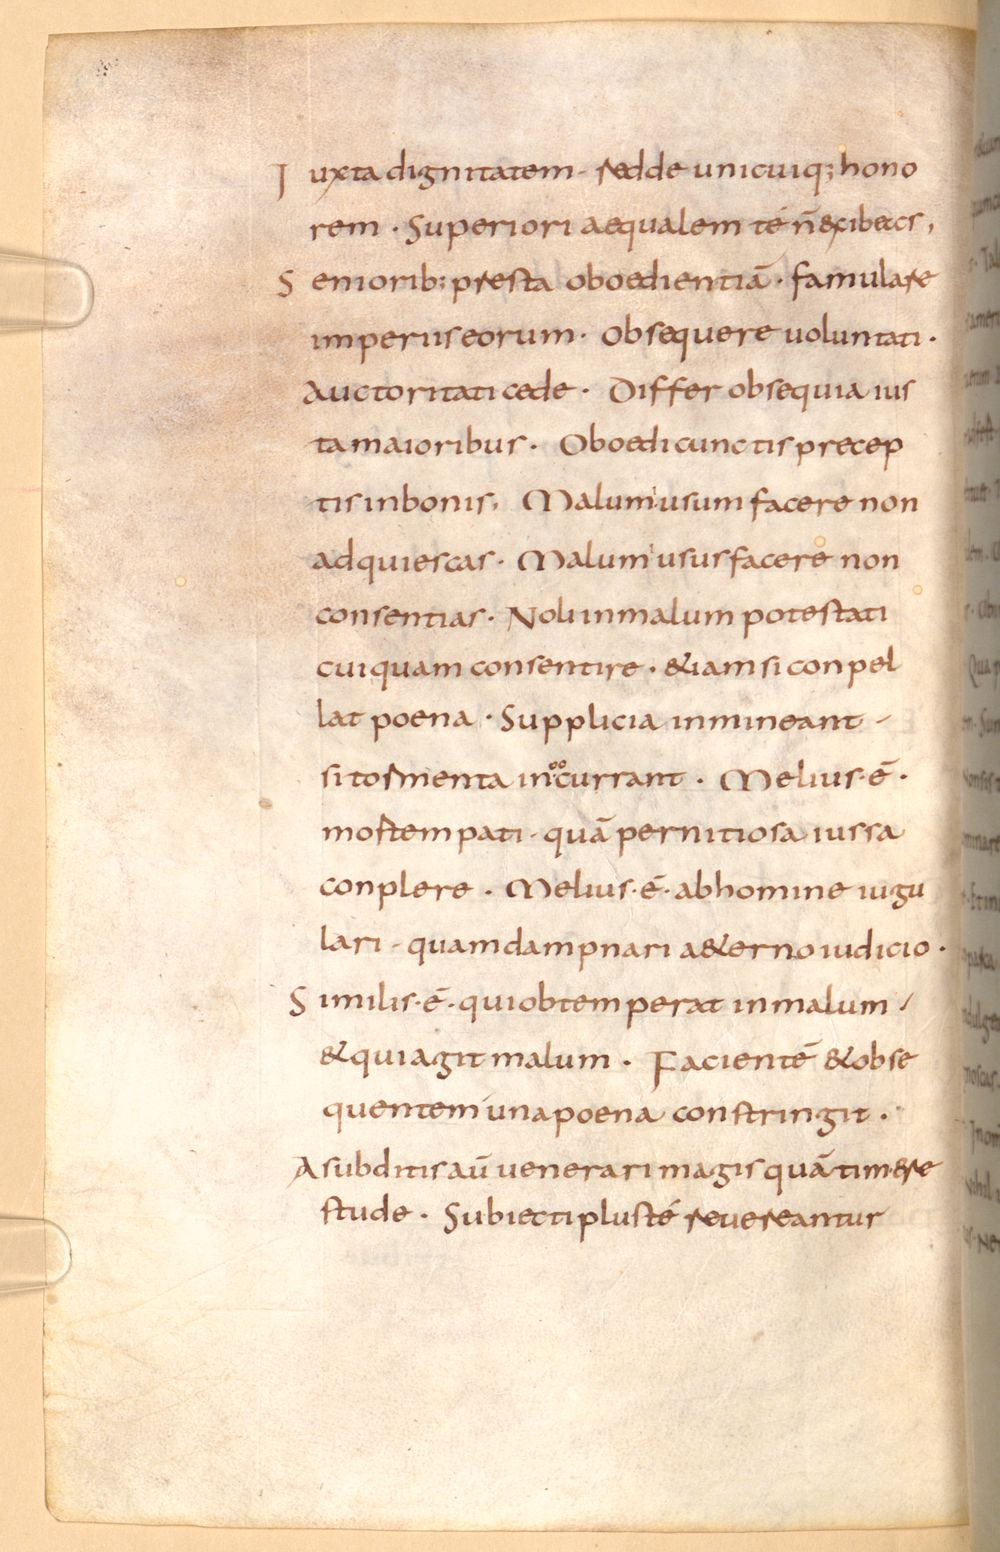 Iuxta dignitatem · redde unicuiq; hono
rem · Superiori aequalem té n̄ exibeas,
Seniorib; presta oboedientiā · famulare
imperiis eorum · Obsequere uoluntati ·
Auctoritati cede · Differ obsequia ius
ta maioribus · Oboedi cunctis precep
tis in bonis, Malum iusum facere non
adquiescas · Malum iusus facere non
consentias · Noli in malum potestati
cuiquam consentire · &iam si conpel
lat poena · Supplicia inmineant -
si tormenta in occurrant · Melius · ē ·
mortem pati · quā pernitiosa iussa
conplere · Melius · ē · ab homine iugu
lari - quam dampnari a&erno iudicio ·
Similis · ē · qui obtemperat in malum /
& qui agit malum · Facientē & obse
quentem una poena constringit ·
A subditis aū uenerari magis quā tim&re
stude · Subiecti plus té reuereantur